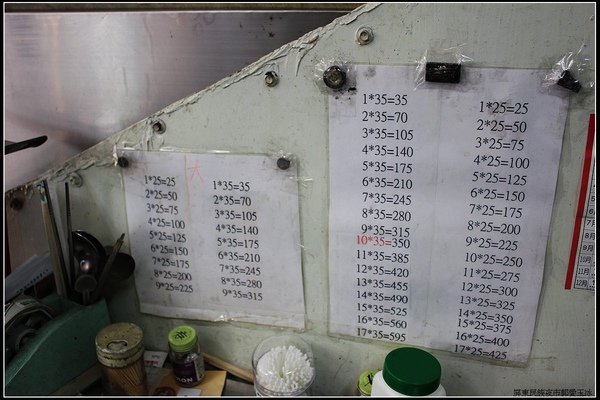 大
1*25=25
2*25=50
3*25=75
4*25=100
5*25=125
6*25=150
7*25=175
8*25=200
9*25=225
1*35=35
2*35=70
3*35=105
4*35=140
5*35=175
6*35=210
7*35=245
8*35=280
9*35=315
1*35=35
2*35=70
3*35=105
4*35=140
5*35=175
6*35=210
7*35=245
8*35=280
9*35=315
10*35=350
11*35=385
12*35=420
13*35=455
14*35=490
15*35=525
16*35=560
17*35=595
1*25=25
2*25=50
3*25=75
4*25=100
5*25=125
6*25=150
7*25=175
8*25=200
9*25=225
10*25=250
11*25=275
12*25=300
13*25=325
14*25=350
15*25=375
16*25=400
17*25=425
7月
8月
9月
10月
11月
12月